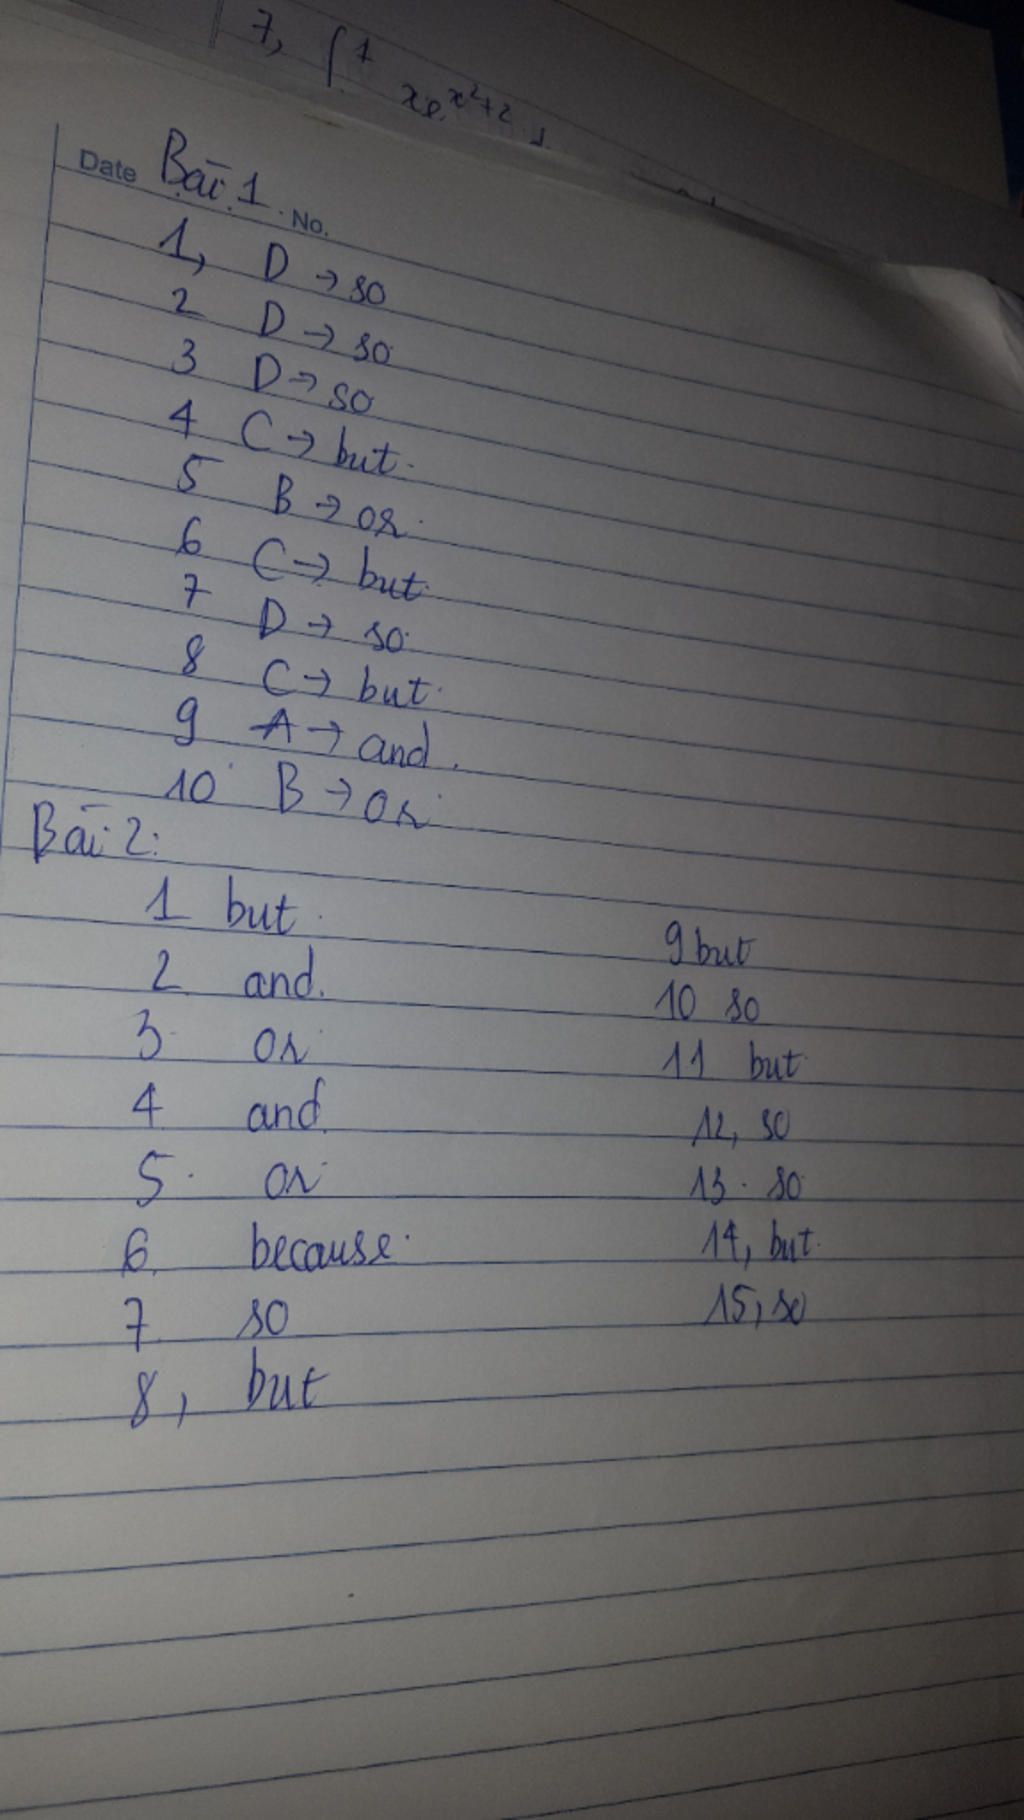 7, ∫ 1
xe x²+2
Date Bài 1 No.
1, D → so
2 D → so
3 D → so
4 C → but.
5 B → or.
6 C → but
7 D → so
8 C → but.
9 A → and.
10 B → or
Bài 2:
1 but
2 and.
3 or
4 and
5. or
6 because.
7 so
8, but
9 but
10 so
11 but
12, so
13. so
14, but.
15, so